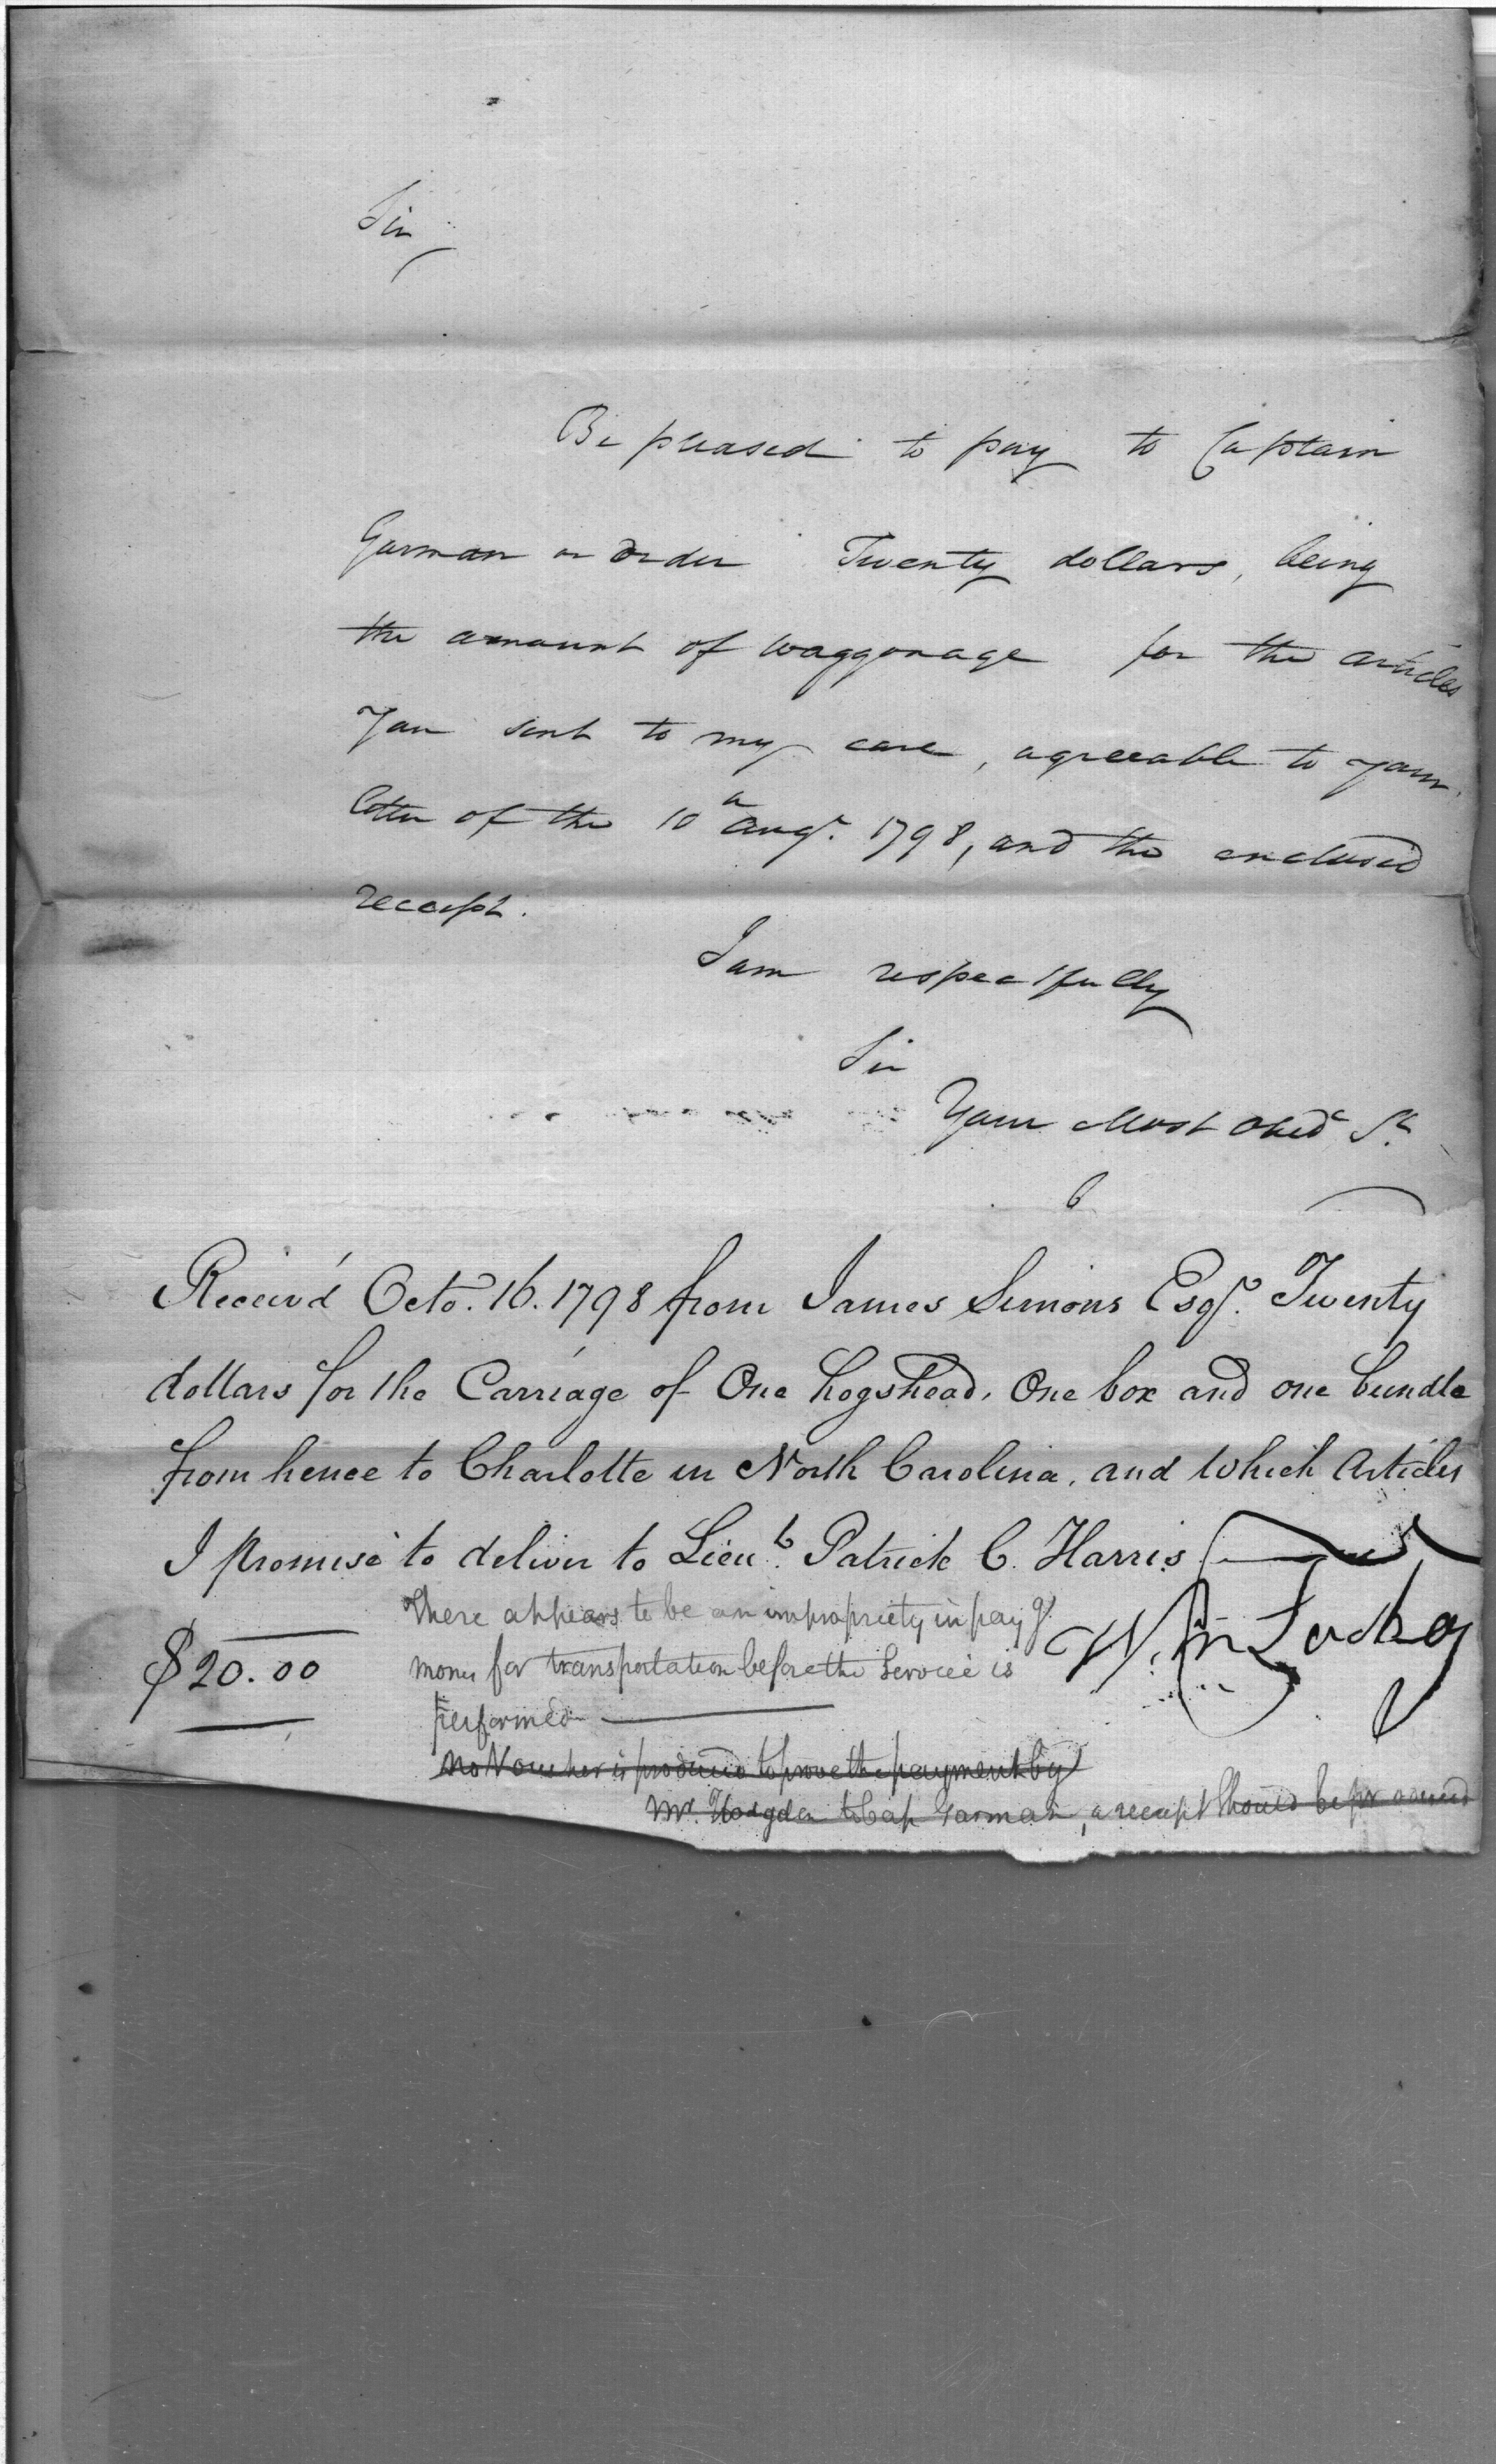 Sir
Be pleased to pay to Captain
Garman or order Twenty dollars, being
the amount of waggonage for the articles
you sent to my care, agreeable to your
letter of the 10th Augt. 1798, and the enclosed
receipt.
I am respectfully
Sir
Your Most Obedt St.
Receiv'd Octo. 16. 1798 from James Simons Esqr. Twenty
dollars for the Carriage of One hogshead, One box and one bundle
from hence to Charlotte in North Carolina, and which Articles
I promise to deliver to Lieut. Patrick C. Harris
There appears to be an impropriety in payg
$20.00
money for transportation before the Service is
performed
No Voucher is produced to prove the payment by
Mr. Hodgdon to Cap Garman, a receipt should be produced